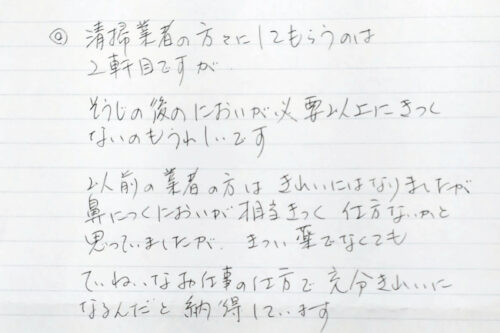 @ 清掃業者の方々にしてもらうのは
2軒目ですが
そうじの後のにおいが必要以上にきつく
ないのもうれしいです
以前の業者の方は きれいにはなりましたが
鼻につくにおいが相当きつく 仕方ないかと
思っていましたが、きつい薬でなくても
ていねいなお仕事の仕方で充分きれいに
なるんだと納得しています